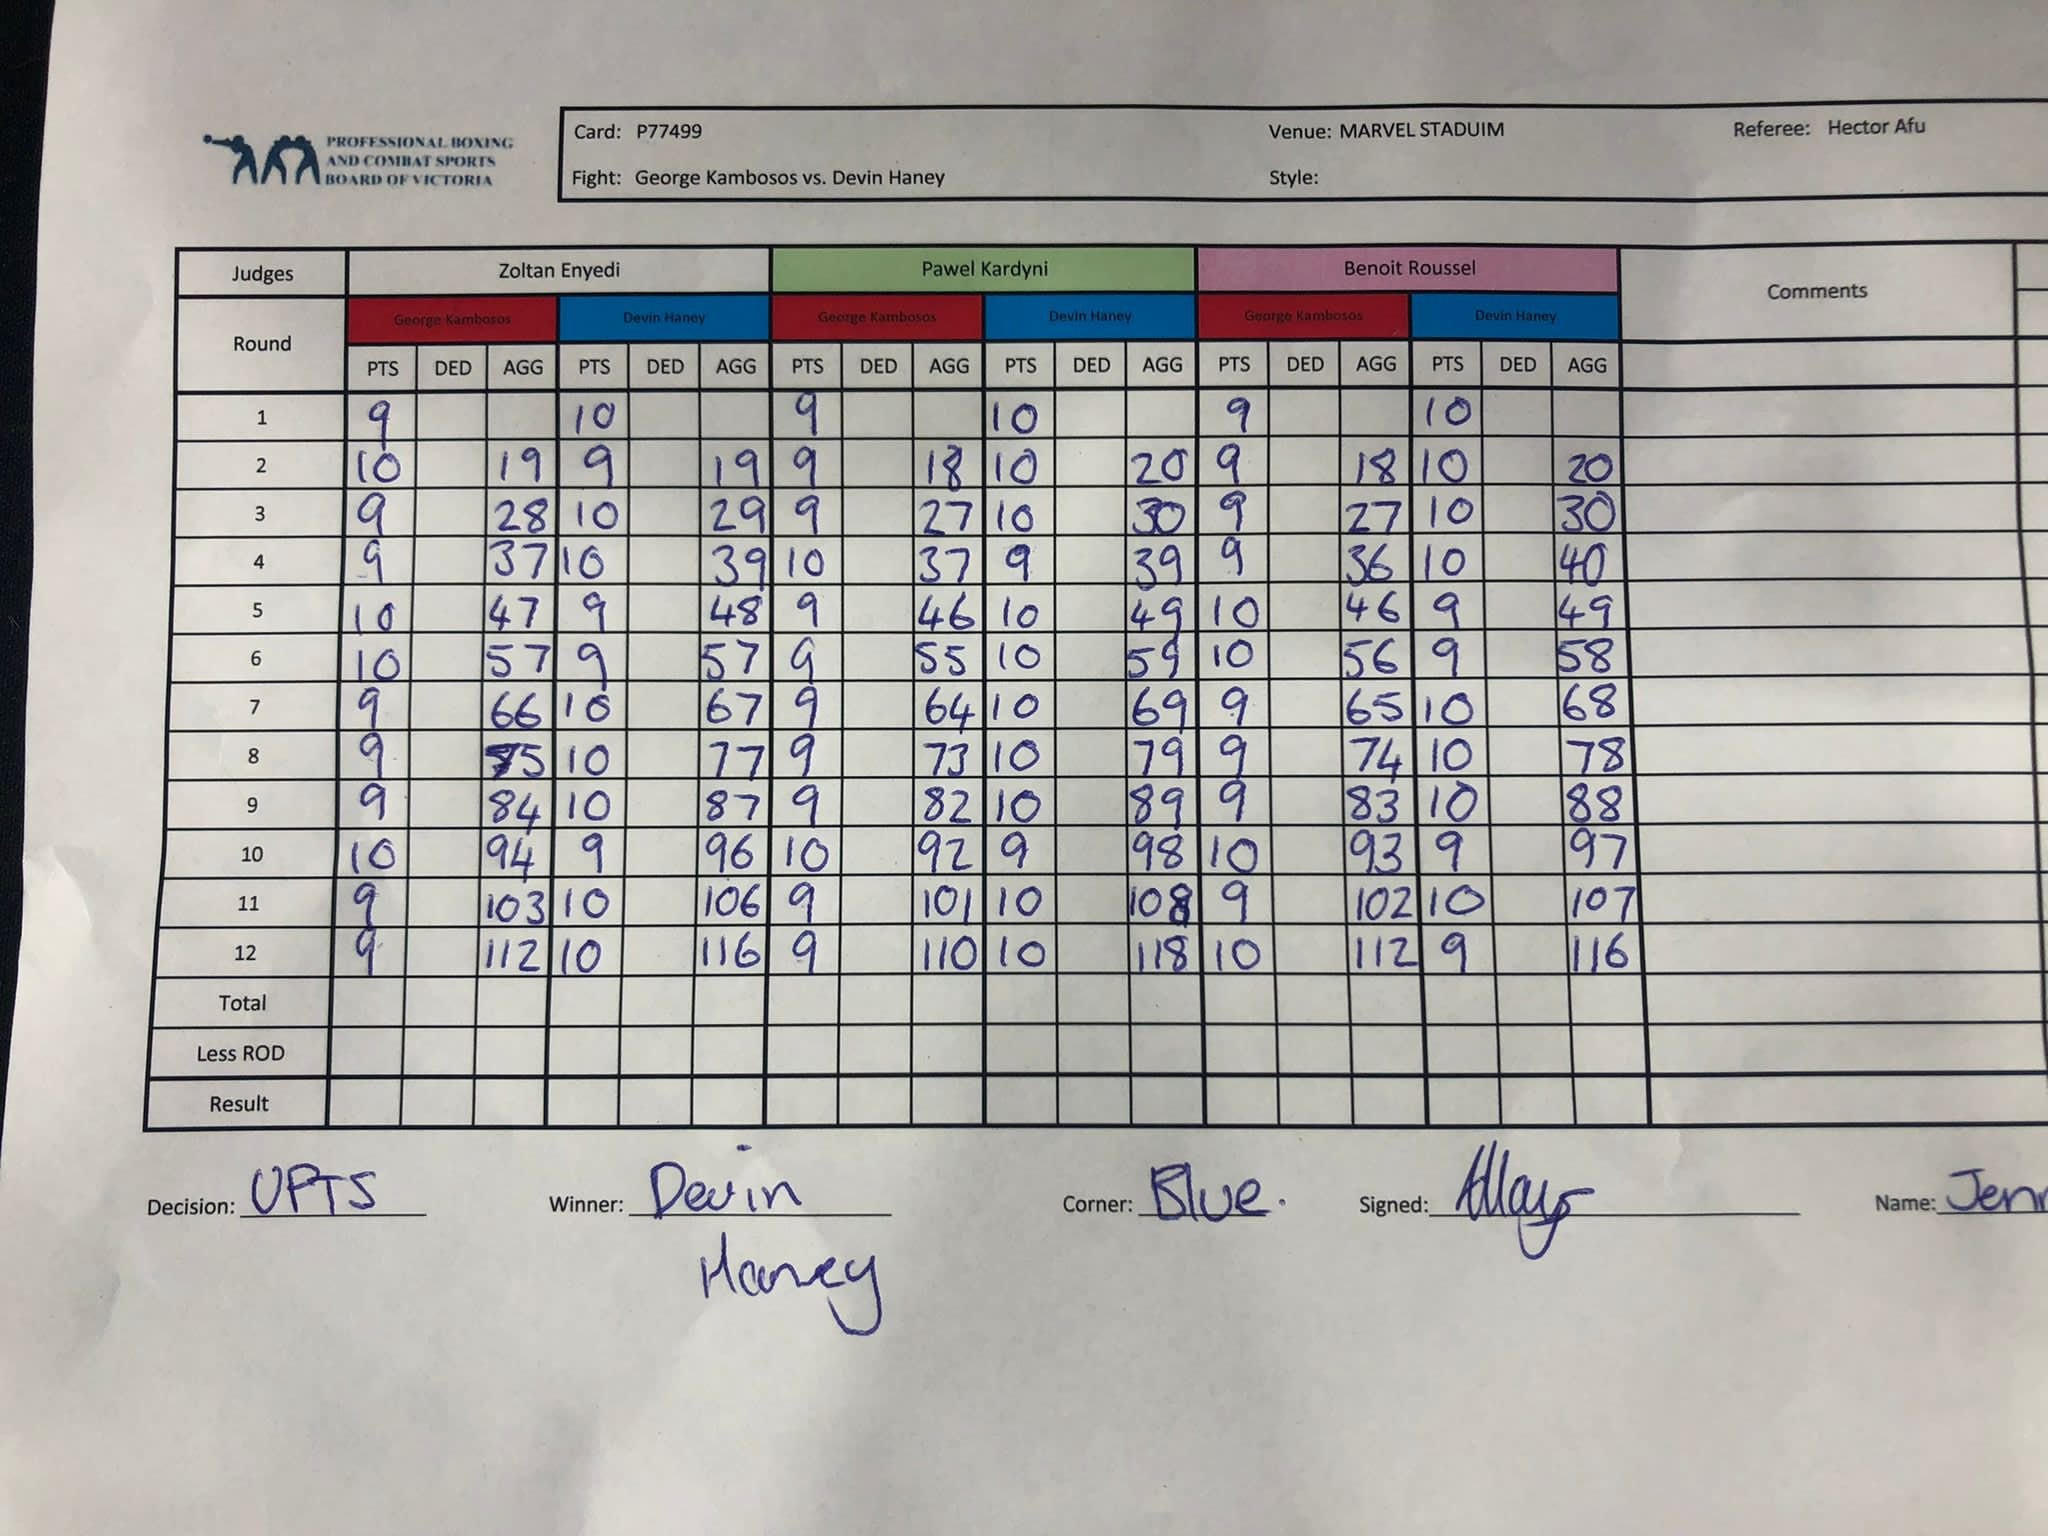 PROFESSIONAL BOXING
AND COMBAT SPORTS
BOARD OF VICTORIA
Card: P77499 Venue: MARVEL STADUIM Referee: Hector Afu
Fight: George Kambosos vs. Devin Haney Style:
Judges Zoltan Enyedi Pawel Kardyni Benoit Roussel Comments
Round George Kambosos Devin Haney George Kambosos Devin Haney George Kambosos Devin Haney
PTS DED AGG PTS DED AGG PTS DED AGG PTS DED AGG PTS DED AGG PTS DED AGG
1 9 10 9 10 9 10
2 10 19 9 19 9 18 10 20 9 18 10 20
3 9 28 10 29 9 27 10 30 9 27 10 30
4 9 37 10 39 10 37 9 39 9 36 10 40
5 10 47 9 48 9 46 10 49 10 46 9 49
6 10 57 9 57 9 55 10 59 10 56 9 58
7 9 66 10 67 9 64 10 69 9 65 10 68
8 9 75 10 77 9 73 10 79 9 74 10 78
9 9 84 10 87 9 82 10 89 9 83 10 88
10 10 94 9 96 10 92 9 98 10 93 9 97
11 9 103 10 106 9 101 10 108 9 102 10 107
12 9 112 10 116 9 110 10 118 10 112 9 116
Total
Less ROD
Result
Decision: UPTS Winner: Devin Corner: Blue. Signed: Name: Jenn
Haney